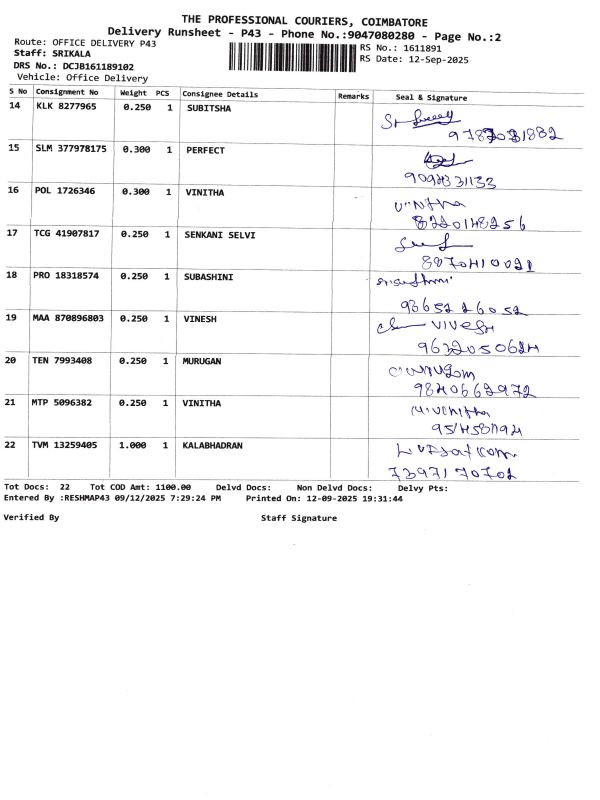 THE PROFESSIONAL COURIERS, COIMBATORE
Delivery Runsheet - P43 - Phone No.:9047080280 - Page No.:2
Route: OFFICE DELIVERY P43
Staff: SRIKALA
DRS No.: DCJB161189102
Vehicle: Office Delivery
RS No.: 1611891
RS Date: 12-Sep-2025
S No Consignment No Weight PCS Consignee Details Remarks Seal & Signature
14 KLK 8277965 0.250 1 SUBITSHA
15 SLM 377978175 0.300 1 PERFECT
16 POL 1726346 0.300 1 VINITHA
8220148256
17 TCG 41907817 0.250 1 SENKANI SELVI
8870410021
18 PRO 18318574 0.250 1 SUBASHINI
9365226052
19 MAA 870896803 0.250 1 VINESH
9632050624
20 TEN 7993408 0.250 1 MURUGAN
9840662972
21 MTP 5096382 0.250 1 VINITHA
22 TVM 13259405 1.000 1 KALABHADRAN
7397170702
Tot Docs: 22 Tot COD Amt: 1100.00 Delvd Docs: Non Delvd Docs: Delvy Pts:
Entered By :RESHMAP43 09/12/2025 7:29:24 PM Printed On: 12-09-2025 19:31:44
Verified By Staff Signature